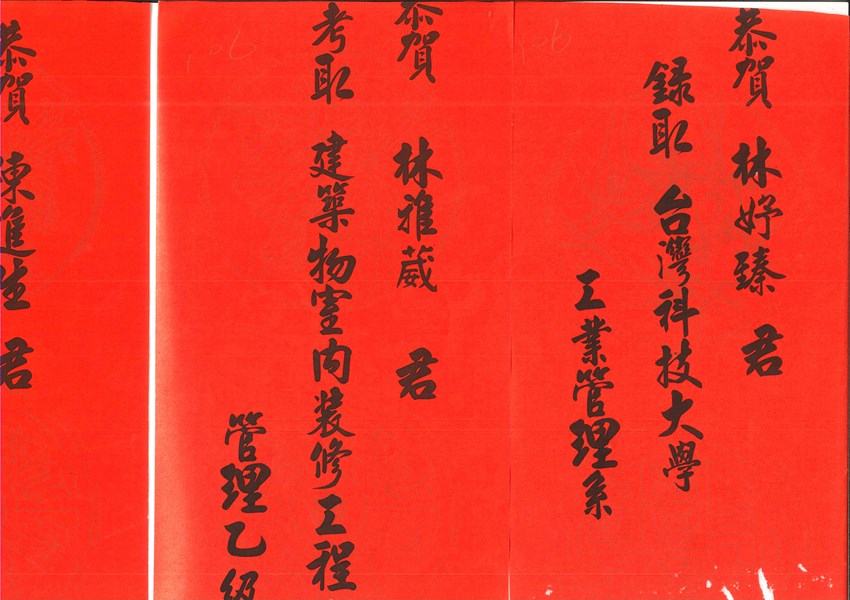 恭賀 林妤臻 君
錄取 台灣科技大學
工業管理系
恭賀 林雅葳 君
考取 建築物室內裝修工程
管理乙級
恭賀 陳進生 君